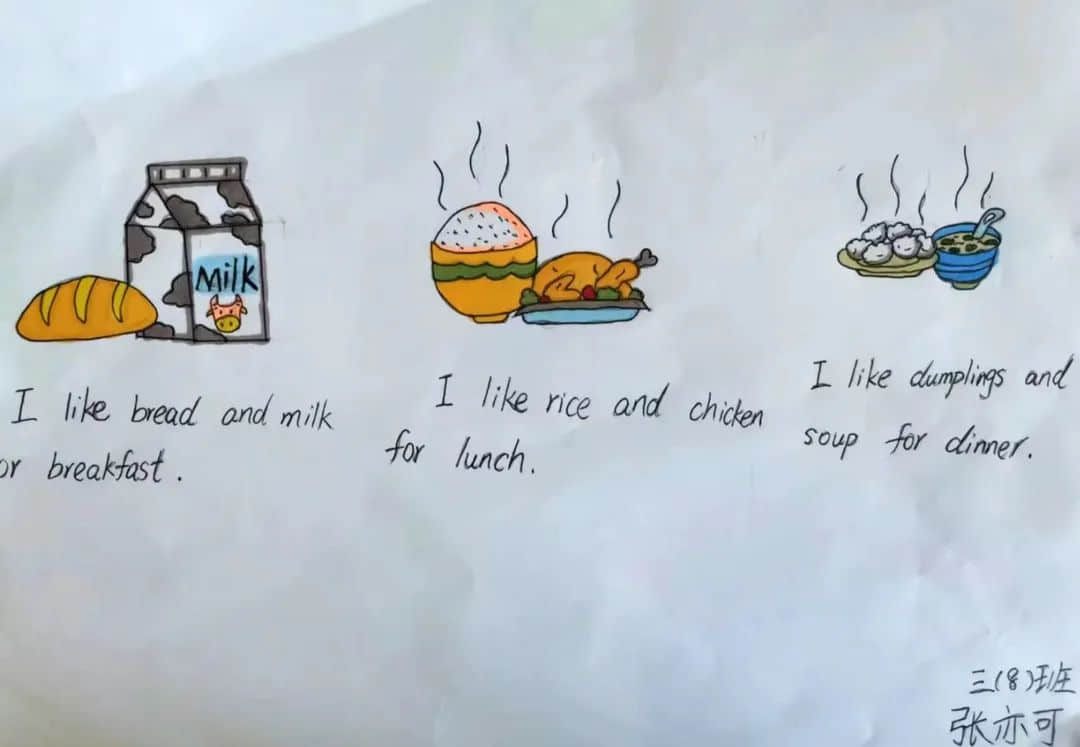 Milk
I like bread and milk
or breakfast.
I like rice and chicken
for lunch.
I like dumplings and
soup for dinner.
三(8)班
张亦可